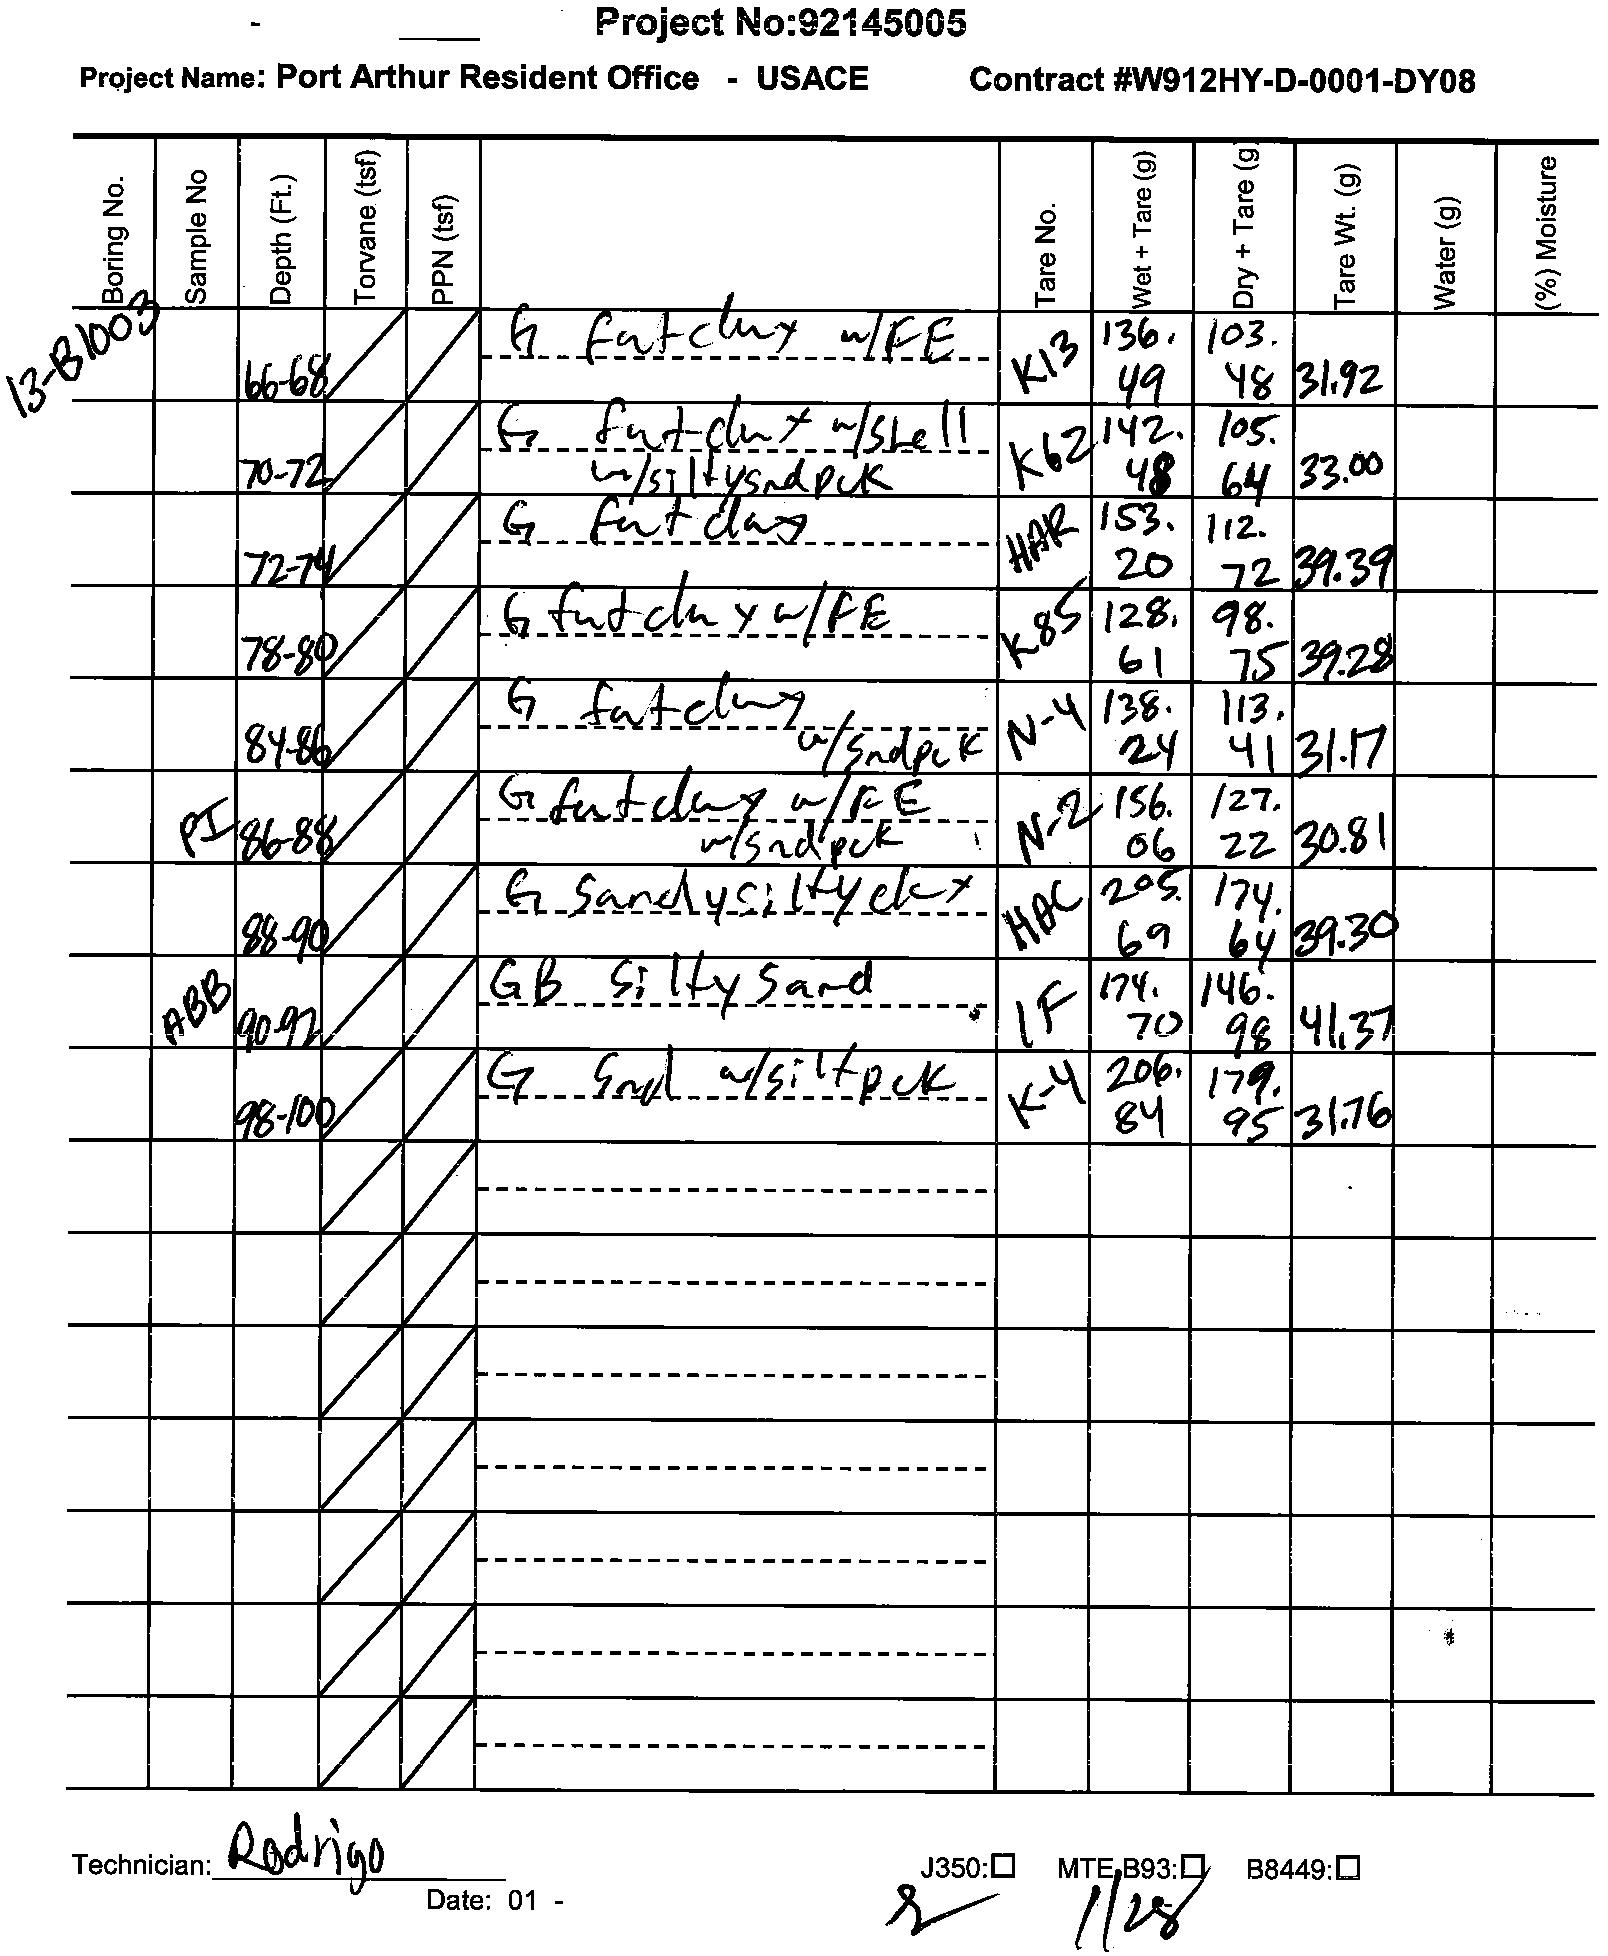 Project No:92145005
Project Name: Port Arthur Resident Office - USACE Contract #W912HY-D-0001-DY08
Boring No. Sample No Depth (Ft.) Torvane (tsf) PPN (tsf) Tare No. Wet + Tare (g) Dry + Tare (g) Tare Wt. (g) Water (g) (%) Moisture
13-B1003
66-68 G fatclay w/FE K13 136.49 103.48 31.92
70-72 G fatclay w/shell K62 142.48 105.64 33.00
w/siltysndpck
72-74 G fatclay HAR 153.20 112.72 39.39
78-80 G fatclay w/FE K85 128.61 98.75 39.28
84-86 G fatclay N-4 138.24 113.41 31.17
w/sndpck
PI 86-88 G fatclay w/FE N-2 156.06 127.22 30.81
w/sndpck
88-90 G sandysiltyclay HAC 205.69 174.64 39.30
ABB 90-92 GB siltysand 1F 174.70 146.98 41.37
98-100 G snd w/siltpck K-4 206.84 179.95 31.76
Technician: Rodrigo J350:☐ MTE B93:☐ B8449:☐
Date: 01 -
1/28